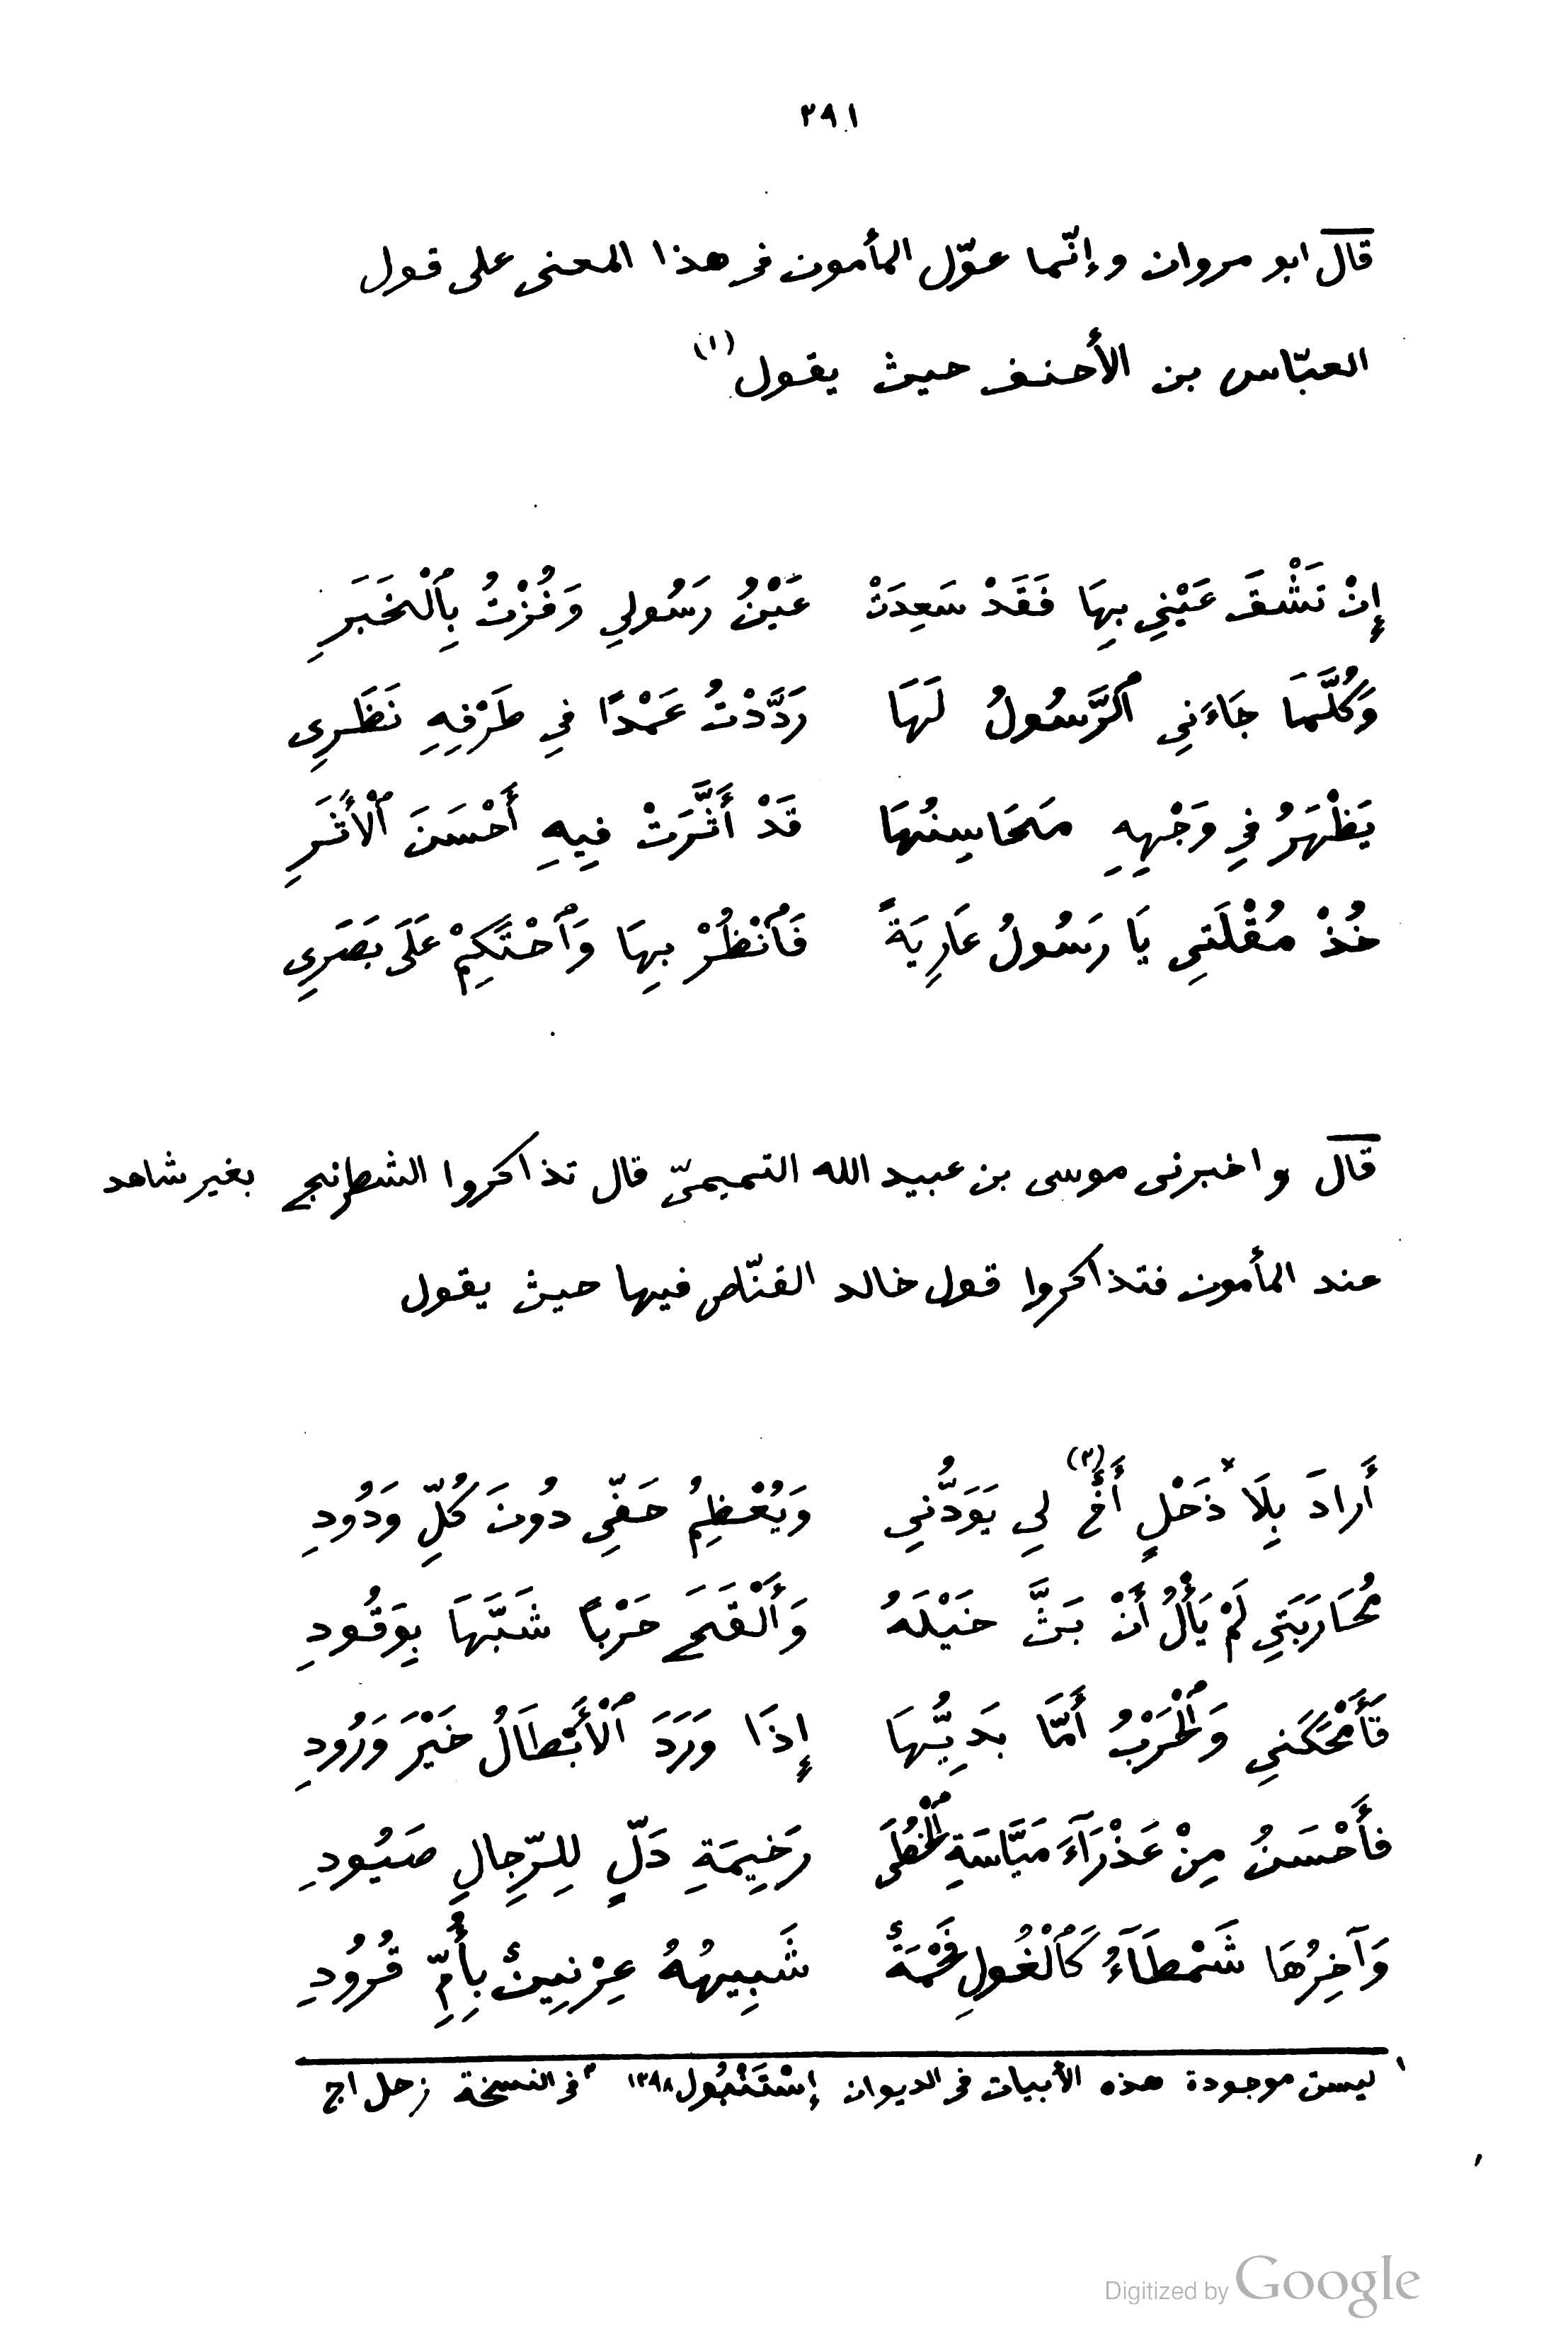 ٢٩١
قال ابو مروان وإنّما عوّل المأمون فى هذا المعنى على قول
العبّاس بن الأحنف حيث يقول (١)
إِنْ تَشْقَ عَيْنِي بِهَا فَقَدْ سَعِدَتْ عَيْنُ رَسُولِي وَفُزْتُ بِٱلْخَبَرِ
وَكُلَّمَا جَاءَنِي ٱلرَّسُولُ لَهَا رَدَّدْتُ عَمْدًا فِي طَرْفِهِ نَظَرِي
يَظْهَرُ فِي وَجْهِهِ مَحَاسِنُهَا قَدْ أَثَّرَتْ فِيهِ أَحْسَنَ ٱلْأَثَرِ
خُذْ مُقْلَتِي يَا رَسُولُ عَارِيَةً فَٱنْظُرْ بِهَا وَٱحْتَكِمْ عَلَى بَصَرِي
قال واخبرنى موسى بن عبيد الله التميمىّ قال تذاكروا الشطرنج بغير شاهد
عند المأمون فتذاكروا قول خالد القنّاص فيها حيث يقول
أَرادَ بِلَا ذَحْلٍ أَخٌ (٢) لِي يَوَدُّنِي وَيُعْظِمُ حَقِّي دُونَ كُلِّ وَدُودِ
مُحَارَبَتِي لَمْ يَأْلُ أَنْ بَثَّ خَيْلَهُ وَأَلْقَحَ حَرْبًا شَبَّهَا بِوَقُودِ
فَأَضْحَكَنِي وَٱلْحَرْبُ أَمَّا بَدِيُّهَا إِذَا وَرَدَ ٱلْأَبْطَالُ خَيْرَ وَرُودِ
فأَحْسَنُ مِنْ عَذْرَآءَ مَيَّاسَةِ ٱلْخُطَى رَخِيمَةِ دَلٍّ لِلرِّجالِ صَيُودِ
وَآخِرُهَا شَمْطَآءُ كَٱلْغُولِ فَحْمَةٌ شَبِيهُهُ عِرْنِينٍ بِأُمِّ قُرُودِ
١ ليست موجودة هذه الأبيات فى الديوان إِسْتَنْبُول ١٢٩٨ ٢ فى النسخة زحل اج
Digitized by Google